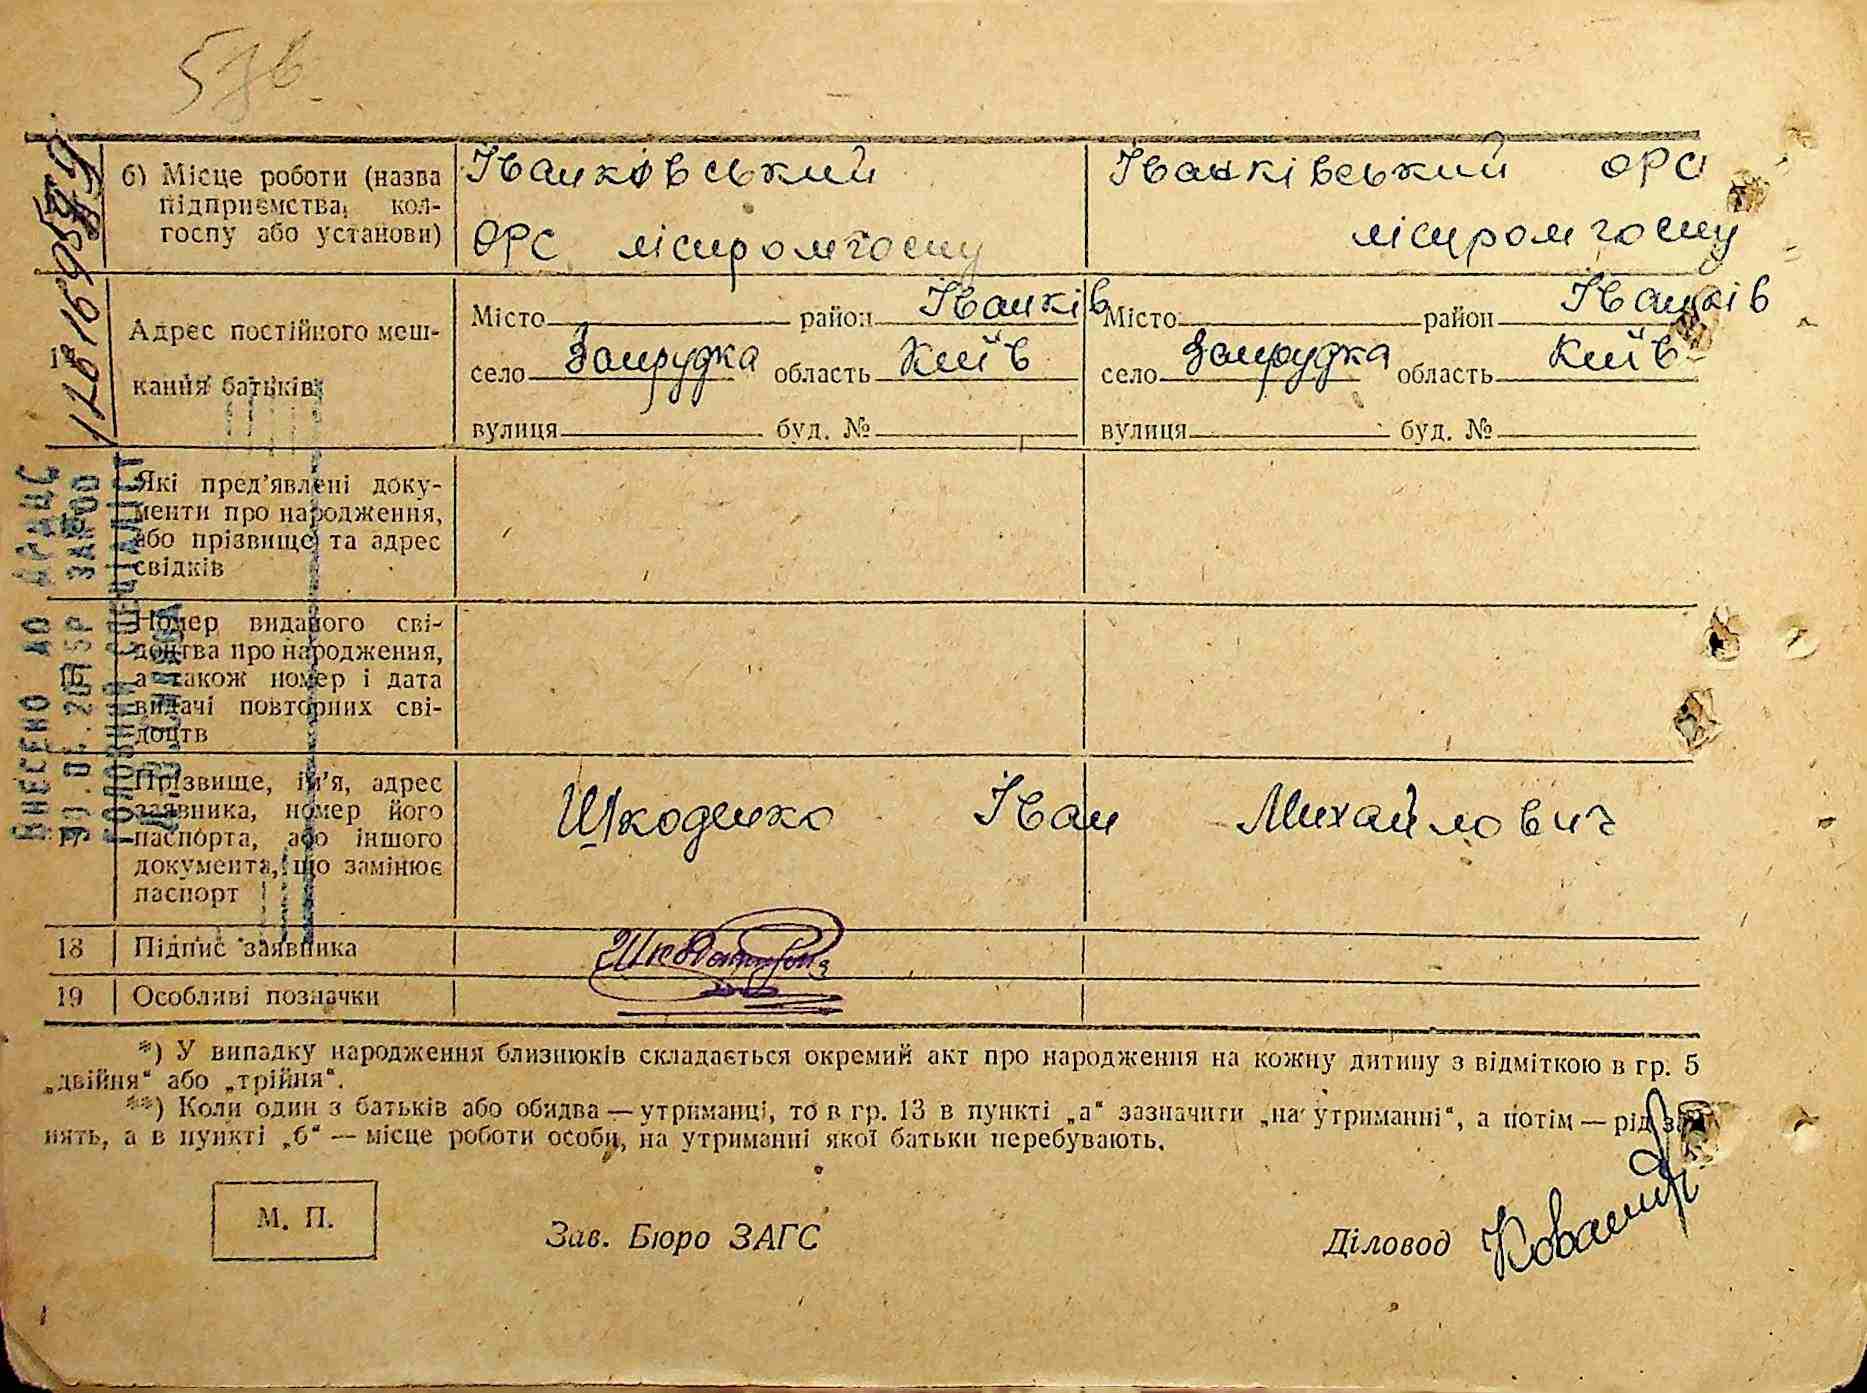 б) Місце роботи (назва
підприємства, кол-
госпу або установи)
Іванковський
ОРС ліспромгоспу
Іванківський ОРС
ліспромгоспу
Адрес постійного меш-
кання батьків
Місто район Іванків
село Запрудка область Київ
вулиця буд. №
Місто район Іванків
село Запрудка область Київ
вулиця буд. №
Які пред’явлені доку-
менти про народження,
або прізвище та адрес
свідків
16
Номер виданого сві-
доцтва про народження,
а також номер і дата
видачі повторних сві-
доцтв
17
Прізвище, ім’я, адрес
заявника, номер його
паспорта, або іншого
документа, що замінює
паспорт
Шкоденко Іван Михайлович
18 Підпис заявника
19 Особливі позначки
*) У випадку народження близнюків складається окремий акт про народження на кожну дитину з відміткою в гр. 5
„двійня“ або „трійня“.
**) Коли один з батьків або обидва — утриманці, то в гр. 13 в пункті „а“ зазначити „на утриманні“, а потім — рід за-
нять, а в пункті „б“ — місце роботи особи, на утриманні якої батьки перебувають.
М. П.
Зав. Бюро ЗАГС
Діловод
ВНЕСЕНО ДО ДРАЦС
ГОЛОВНИЙ СПЕЦІАЛІСТ